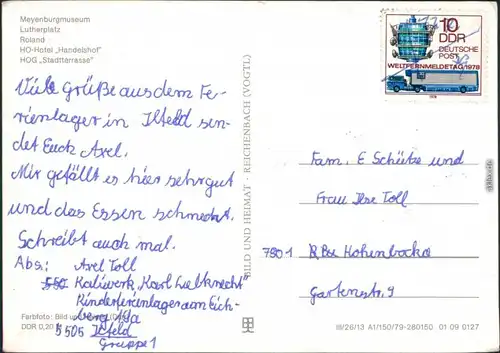 Meyenburgmuseum
Lutherplatz
Roland
HO-Hotel „Handelshof"
HOG „Stadtterrasse"
Viele Grüße aus dem Fe-
rienlager in Ilfeld sen-
det Euch Axel.
Mir gefällt es hier sehr gut
und das Essen schmeckt.
Schreibt auch mal.
Abs.: Axel Toll
Kaliwerk „Karl Liebknecht"
Kinderferienlager am Eich-
berg 19a
5505 Ilfeld
Gruppe 1
Farbfoto: Bild und
DDR 0,20 M
BILD UND HEIMAT · REICHENBACH (VOGTL)
10
DDR
DEUTSCHE
POST
WELTFERNMELDETAG 1978
1978
Fam. E Schütze und
Frau Ilse Toll
7801 Hohenbocka
Gartenstr. 9
III/26/13 A1/150/79-280150 01 09 0127